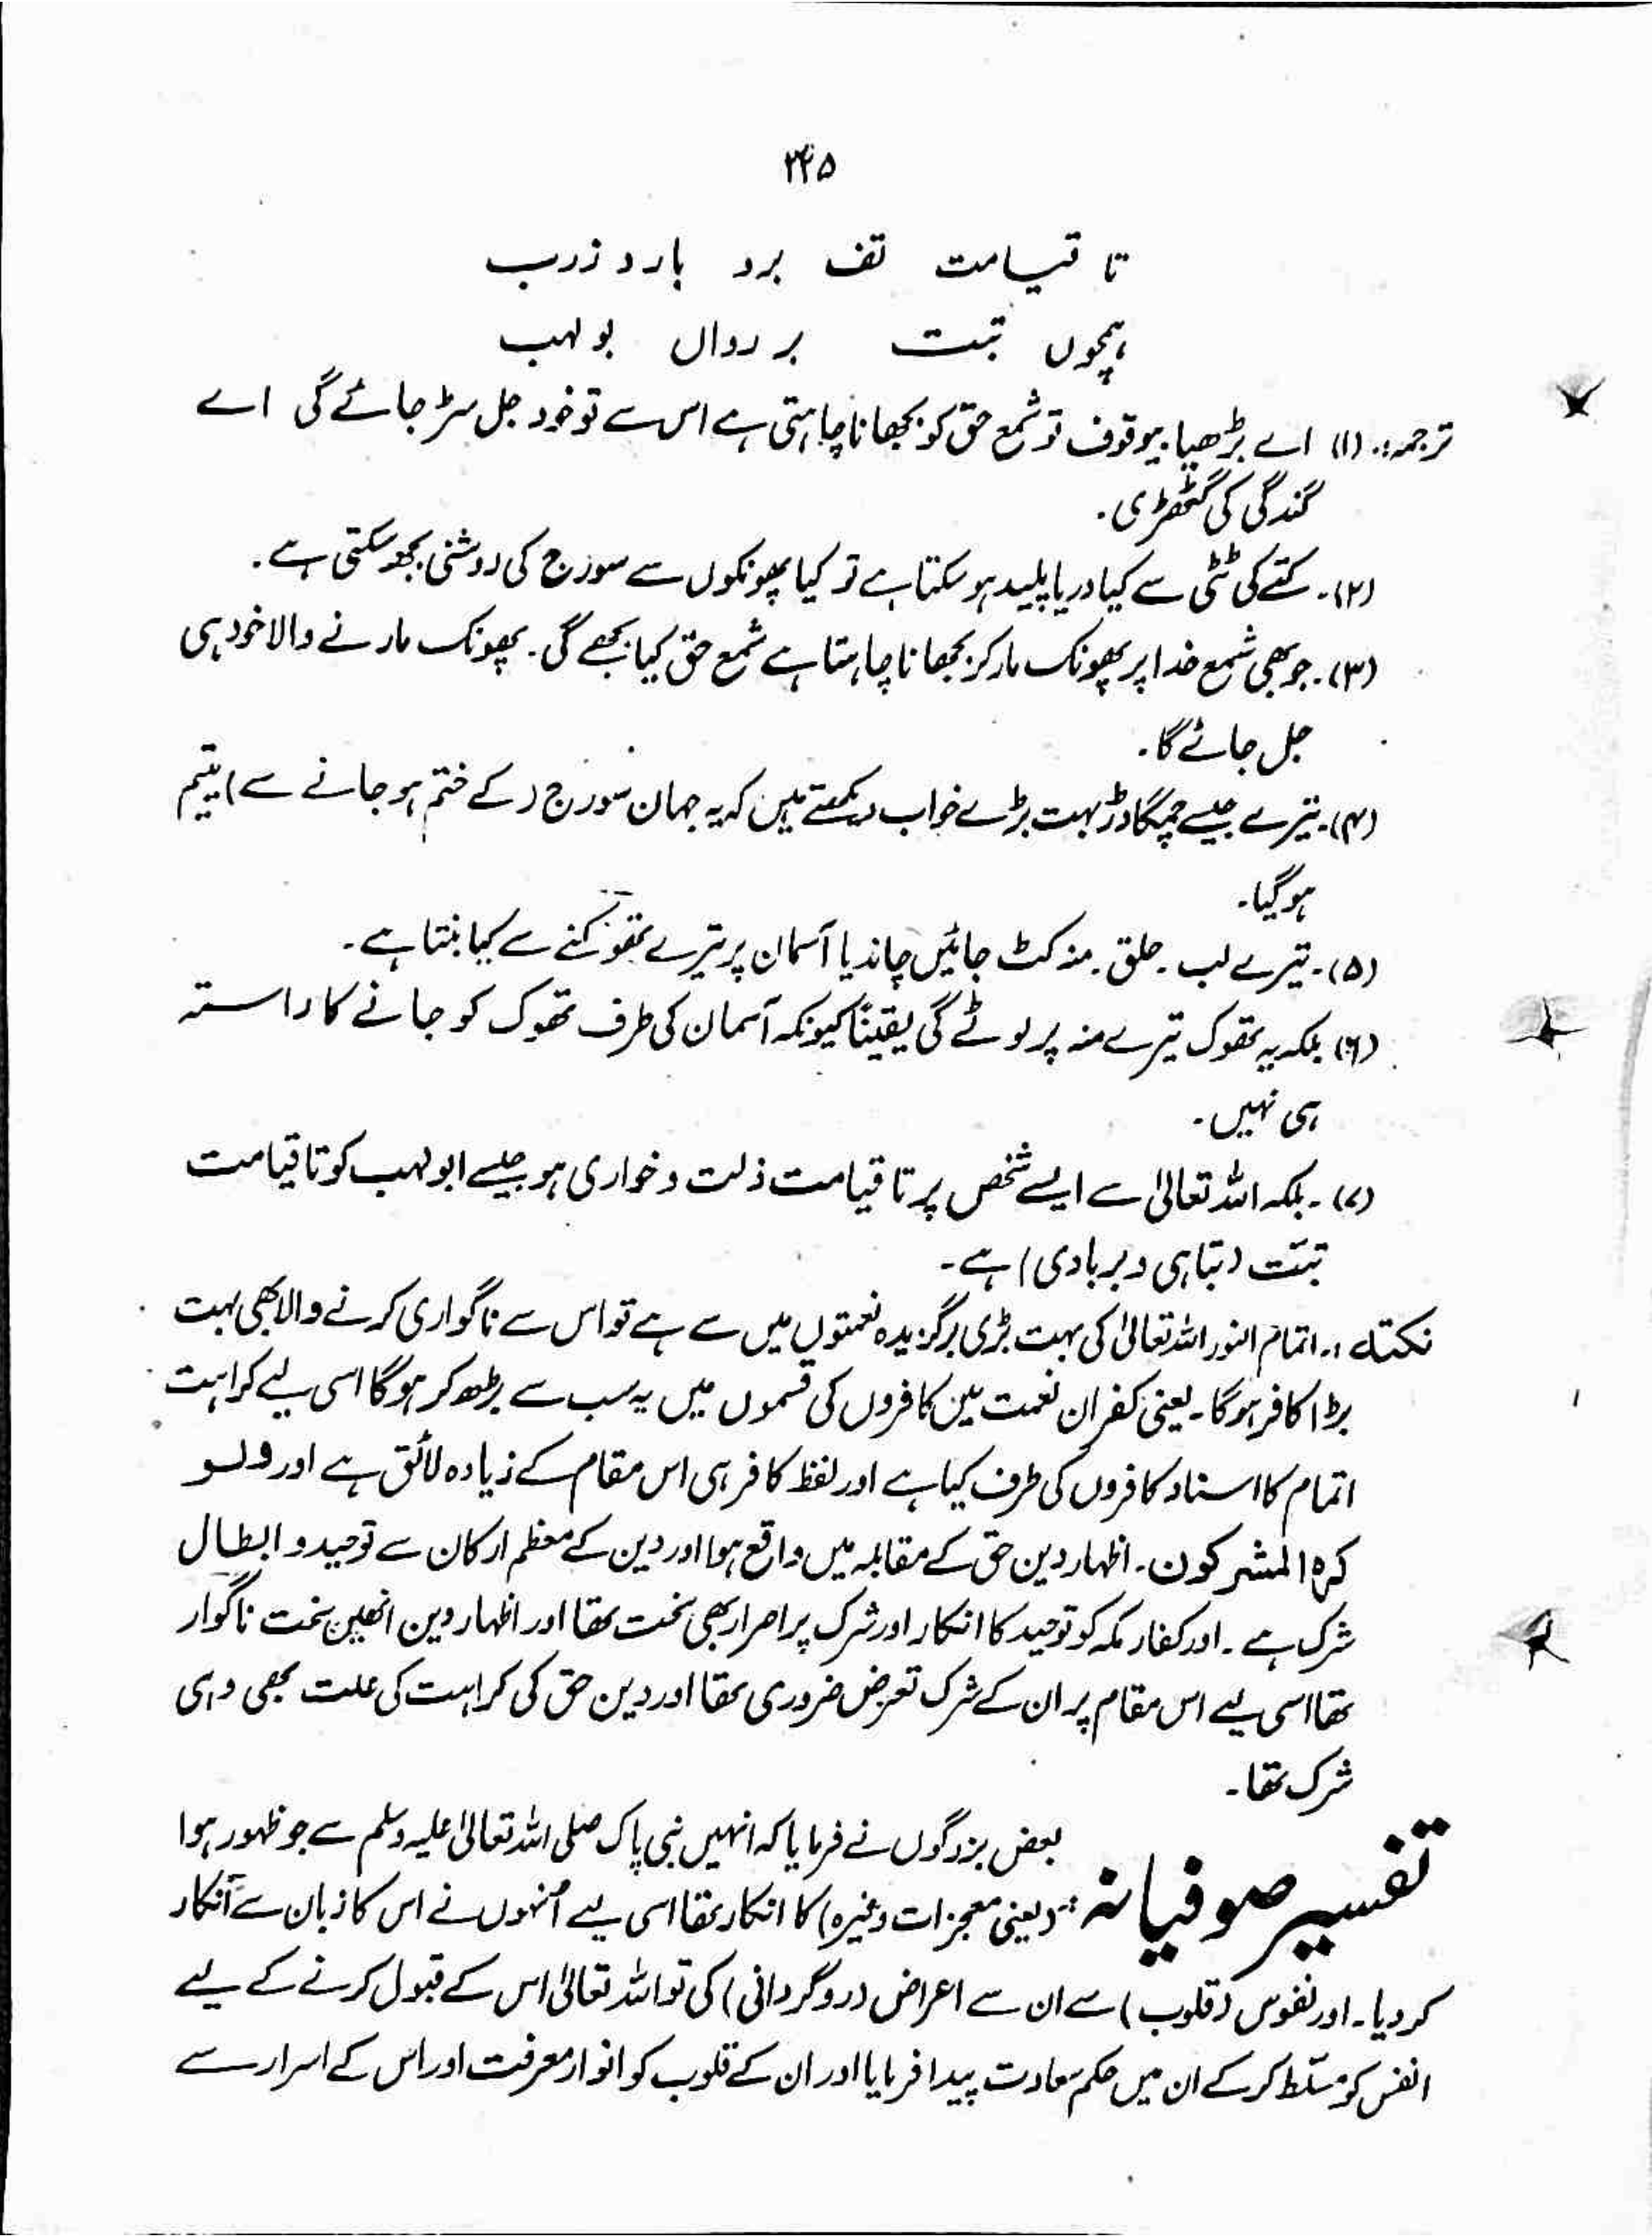 ۳۲۵
تا قیامت تف برد بارد زرب
ہمچوں تبت بر رواں بولہب
ترجمہ:۔ (۱) اے بڑھیا بیوقوف تو شمع حق کو بجھانا چاہتی ہے اس سے تو خود جل سڑ جائے گی اے
گندگی کی گٹھڑی۔
(۲)۔ کتے کی ٹٹی سے کیا دریا پلید ہو سکتا ہے تو کیا پھونکوں سے سورج کی روشنی بجھ سکتی ہے۔
(۳)۔ جو بھی شمع خدا پر پھونک مار کر بجھانا چاہتا ہے شمع حق کیا بجھے گی۔ پھونک مارنے والا خود ہی
جل جائے گا۔
(۴)۔ تیرے جیسے چمگادڑ بہت بڑے خواب دیکھتے ہیں کہ یہ جہان سورج (کے ختم ہو جانے سے) یتیم
ہو گیا۔
(۵)۔ تیرے لب۔ حلق۔ منہ کٹ جائیں چاند یا آسمان پر تیرے تھوکنے سے کیا بنتا ہے۔
(۶) بلکہ یہ تھوک تیرے منہ پر لوٹے گی یقیناً کیونکہ آسمان کی طرف تھوک کو جانے کا راستہ
ہی نہیں۔
(۷)۔ بلکہ اللہ تعالیٰ سے ایسے شخص پر تا قیامت ذلت و خواری ہو جیسے ابولہب کو تا قیامت
تبّت (تباہی و بربادی) ہے۔
نکتہ:۔ اتمام النور اللہ تعالیٰ کی بہت بڑی برگزیدہ نعمتوں میں سے ہے تو اس سے ناگواری کرنے والا بھی بہت
بڑا کافر ہوگا۔ یعنی کفران نعمت میں کافروں کی قسموں میں یہ سب سے بڑھ کر ہوگا اسی لیے کراہت
اتمام کا اسناد کافروں کی طرف کیا ہے اور لفظ کافر ہی اس مقام کے زیادہ لائق ہے اور ولو
کرہ المشرکون۔ اظہار دین حق کے مقابلہ میں واقع ہوا اور دین کے معظم ارکان سے توحید و ابطال
شرک ہے۔ اور کفار مکہ کو توحید کا انکار اور شرک پر اصرار بھی سخت تھا اور اظہار دین انھیں سخت ناگوار
تھا اسی لیے اس مقام پر ان کے شرک تعرض ضروری تھا اور دین حق کی کراہت کی علت بھی وہی
شرک تھا۔
تفسیر صوفیانہ:۔ بعض بزرگوں نے فرمایا کہ انہیں نبی پاک صلی اللہ تعالیٰ علیہ وسلم سے جو ظہور ہوا
(یعنی معجزات وغیرہ) کا انکار تھا اسی لیے اُنہوں نے اس کا زبان سے انکار
کر دیا۔ اور نفوس (قلوب) سے ان سے اعراض (روگردانی) کی تو اللہ تعالیٰ اس کے قبول کرنے کے لیے
انفس کو مسلّط کر کے ان میں حکم سعادت پیدا فرمایا اور ان کے قلوب کو انوار معرفت اور اس کے اسرار سے